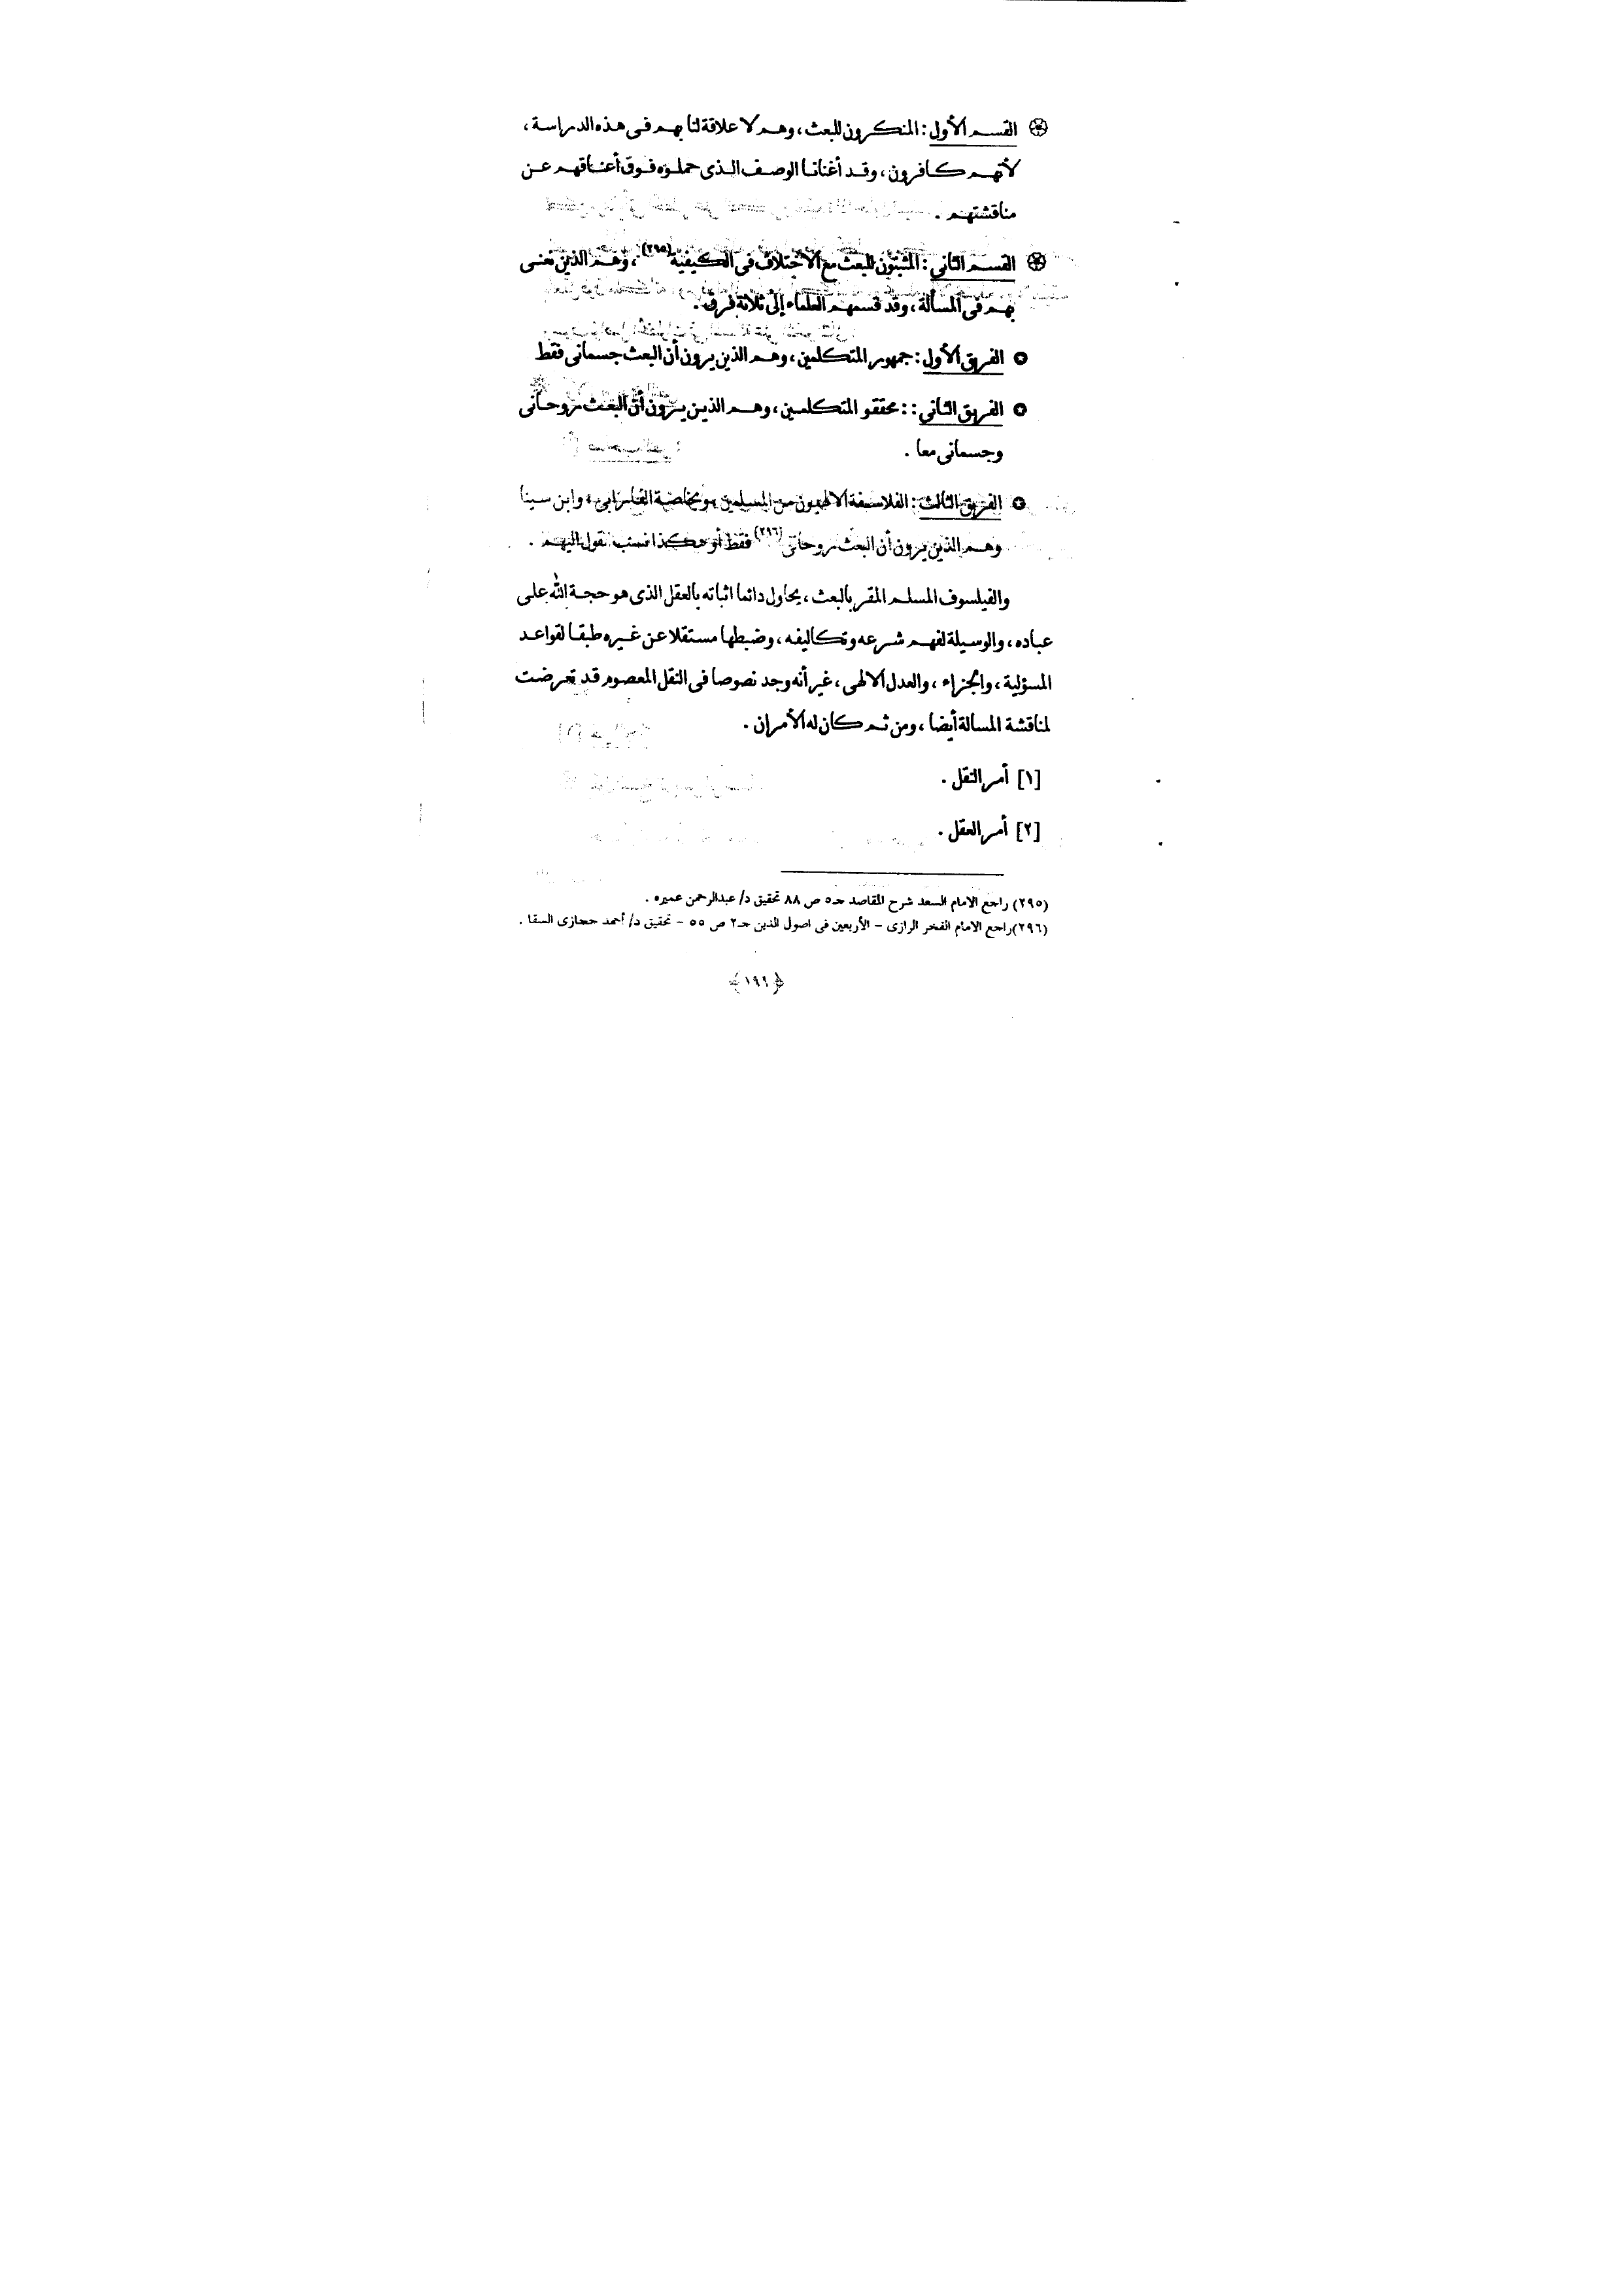 القسم الأول : المنكرون للبعث ، وهم لا علاقة لنا بهم فى هذه الدراسة ،
لأنهم كافرون ، وقد أغنانا الوصف الذى حملوه فوق أعناقهم عن
مناقشتهم .
القسم الثانى : المثبتون للبعث مع الاختلاف فى الكيفية (٢٩٥) ، وهم الذين نعنى
بهم فى المسألة ، وقد قسمهم العلماء إلى ثلاثة فرق .
الفريق الأول : جمهور المتكلمين ، وهم الذين يرون أن البعث جسمانى فقط
الفريق الثانى : : محققو المتكلمين ، وهم الذين يرون أن البعث روحانى
وجسمانى معا .
الفريق الثالث : الفلاسفة الالهيون من المسلمين وبخاصة الفارابى ، وابن سينا
وهم الذين يرون أن البعث روحانى (٢٩٦) فقط أو هكذا نسب نقول اليهم .
والفيلسوف المسلم المقر بالبعث ، يحاول دائما اثباته بالعقل الذى هو حجة الله على
عباده ، والوسيلة لفهم شرعه وتكاليفه ، وضبطها مستقلا عن غيره طبقا لقواعد
المسؤلية ، والجزاء ، والعدل الالهى ، غير أنه وجد نصوصا فى النقل المعصوم قد تعرضت
لمناقشة المسالة أيضا ، ومن ثم كان له الأمران .
[١] أمر النقل .
[٢] أمر العقل .
(٢٩٥) راجع الامام السعد شرح المقاصد حـ٥ ص ٨٨ تحقيق د/ عبدالرحمن عميره .
(٢٩٦)راجع الامام الفخر الرازى – الأربعين فى اصول الدين حـ٢ ص ٥٥ – تحقيق د/ أحمد حجازى السقا .
﴿١٩٩﴾